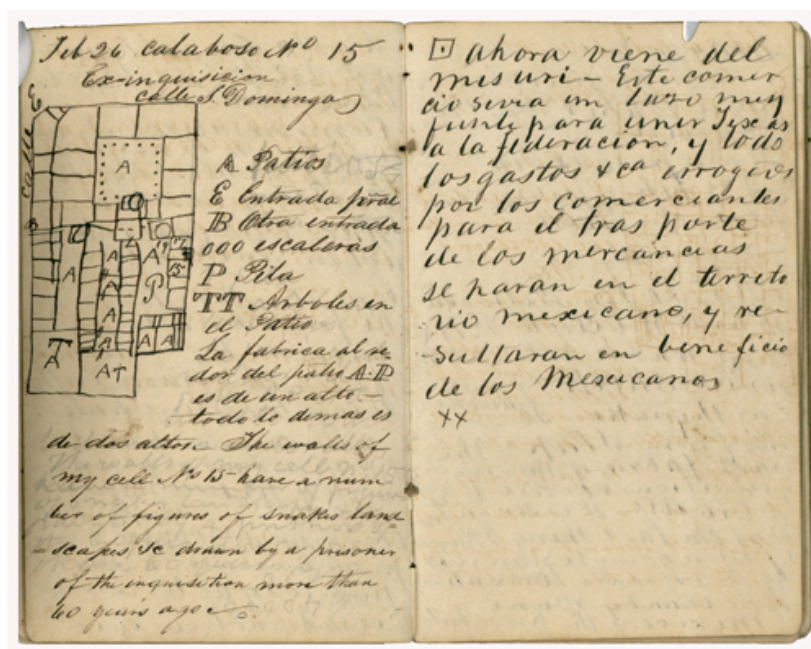 Feb 26 calaboso No 15
Ex-inquisicion
calle S. Domingo
calle E
B
A
A
A
A
A
A
A
A
17
15
P
A
A
T
A
AT
A Patios
E Entrada prãl
B Otra entrada
000 escaleras
P Pila
TT Arboles en
el Patio
La fabrica al re-
dor del patio A.P
es de un alto –
todo lo demas es
de dos altos – The walls of
my cell No 15 have a num
ber of figures of snakes land
scapes &c drawn by a prisoner
of the inquisition more than
60 years ago
ahora viene del
misuri – Este comer
cio seria un lazo muy
fuerte para unir Texas
a la federacion, y todo
los gastos & ca erogados
por los comerciantes
para el tras porte
de los mercancias
se haran en el territo
rio mexicano, y re-
sultaran en bene ficio
de los Mexicanos
xx